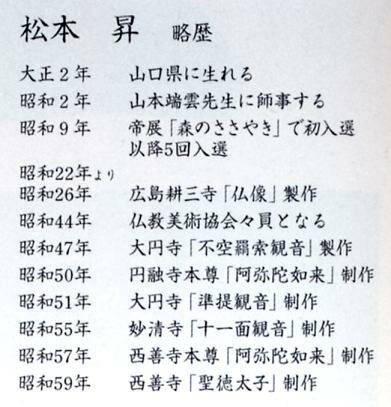 松本　昇　略歴
大正2年　山口県に生れる
昭和2年　山本端雲先生に師事する
昭和9年　帝展「森のささやき」で初入選
以降5回入選
昭和22年より
昭和26年　広島耕三寺「仏像」製作
昭和44年　仏教美術協会々員となる
昭和47年　大円寺「不空羂索観音」製作
昭和50年　円融寺本尊「阿弥陀如来」制作
昭和51年　大円寺「準提観音」制作
昭和55年　妙清寺「十一面観音」制作
昭和57年　西善寺本尊「阿弥陀如来」制作
昭和59年　西善寺「聖徳太子」制作